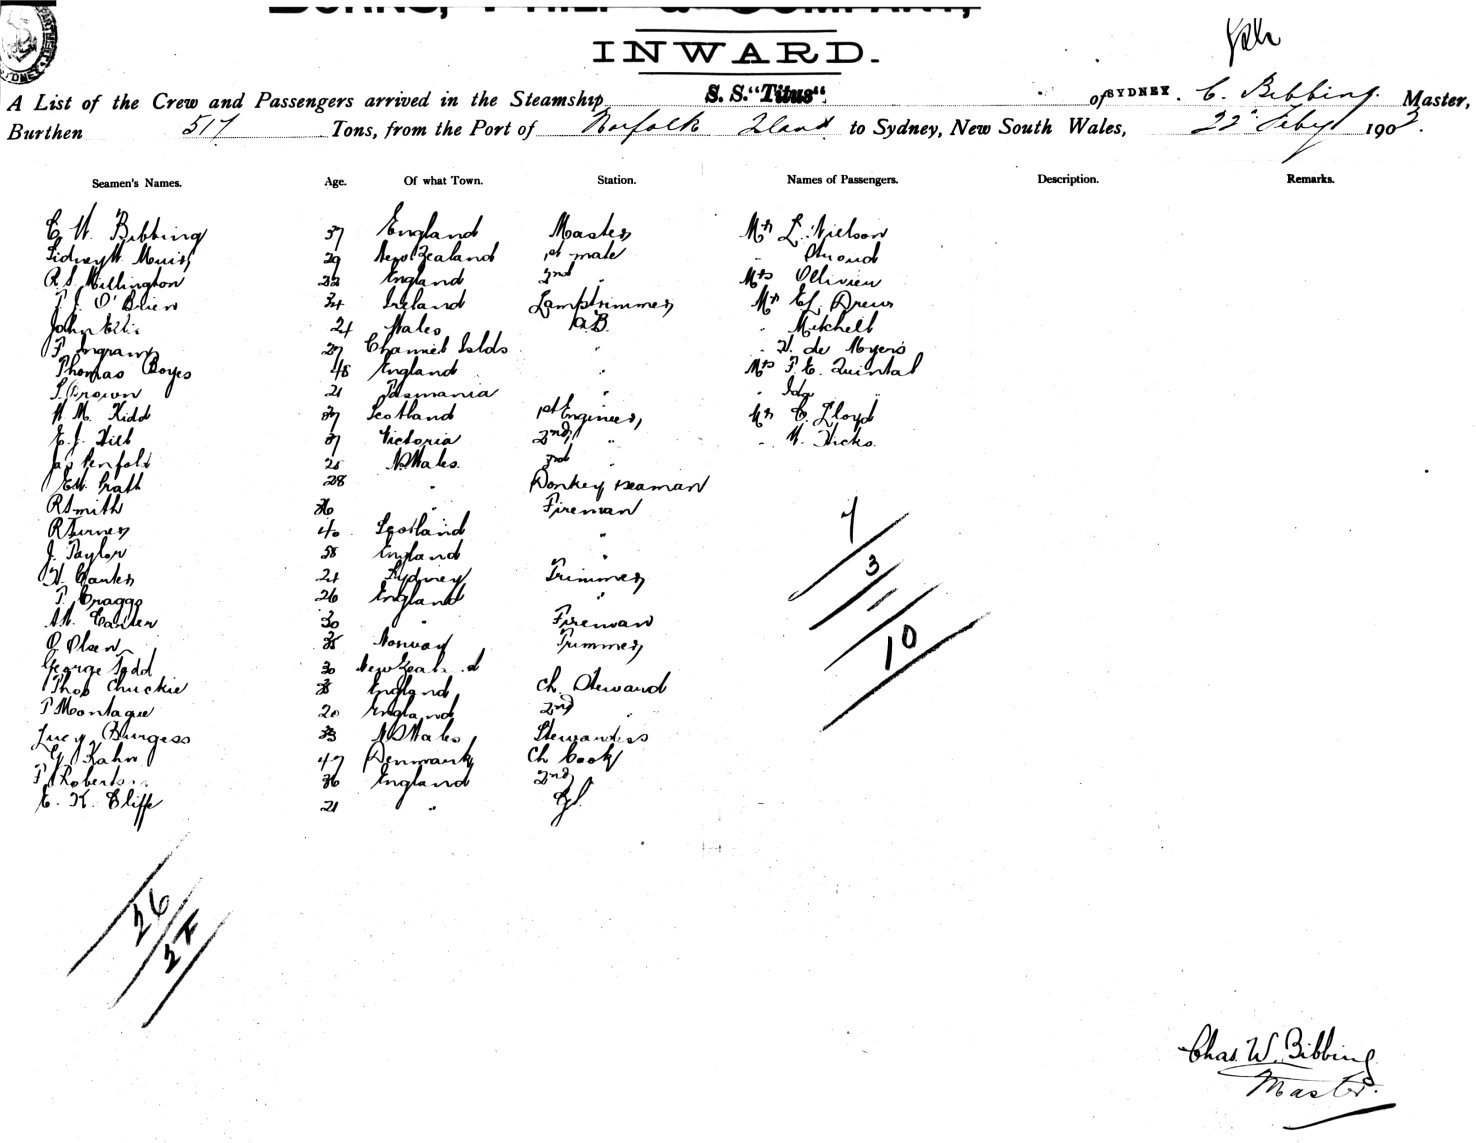 BURNS, PHILP & COMPANY,
INWARD.
A List of the Crew and Passengers arrived in the Steamship S. S. "Titus" of SYDNEY. C. Bibbing. Master,
Burthen 517 Tons, from the Port of Norfolk Island to Sydney, New South Wales, 22nd Feby 1903.
Seamen's Names. Age. Of what Town. Station. Names of Passengers. Description. Remarks.
C W. Bibbing 37 England Master Mr L. Nielson
Sidney W. Muir 29 New Zealand 1st mate " Stroud
R. S. Millington 22 England 2nd " Mrs Ollivier
T. J. O'Brien 34 Ireland Lamptrimmer Mr EL Drew
John 24 Wales A.B. " Mitchell
F Ingram 27 Channel Islds " " H. de Moyers
Thomas Boyes 48 England " Mrs F. E. Quintal
S Brown 21 Tasmania " " Ida "
W M. Kidd 37 Scotland 1st Engineer Mr C. Lloyd
E. J. Hill 37 Victoria 2nd " " W. Hicks.
Jas Penfold 25 N S Wales. 3rd "
28 " Donkey seaman
R Smith 36 " Fireman
R Turner 40 Scotland "
J. Taylor 28 England "
H. 24 Sydney Trimmer
T. Craggs 26 England "
30 " Fireman
O Olsen 35 Norway Trimmer
George Todd 30 New Zealand
Thos Chuckie England Ch. Steward
P Montague 20 England 2nd "
Lucy Burgess 33 N S Wales Stewardess
G Kahn 47 Denmark Ch Cook
P Roberts 36 England 2nd "
E. K. Cliffe 21 "
7
3
1
10
26
27
Chas. W. Bibbing
Master.